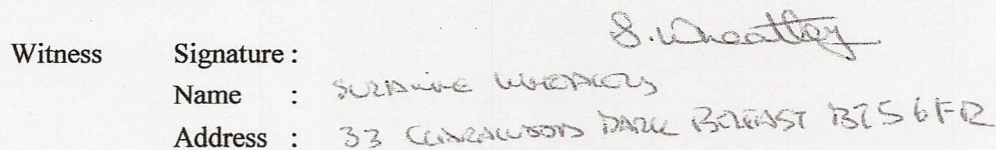 Witness Signature : S. Wheatley
Name : SUZANNE WHEATLEY
Address : 33 CLARAWOOD PARK BELFAST BT5 6FR